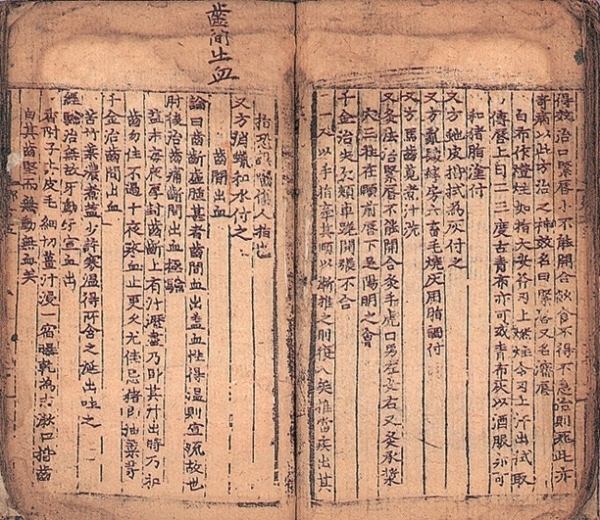 得效治口緊唇小不能開合飲食不得不急治則死此亦
奇病以此方治之神效名曰緊唇又名瀋唇
白布作燈炷如指大安斧刃上燃炷令刃上汗出拭取
傅唇上日二三度古青布亦可或青布灰以酒服亦可
和猪脂塗付
又方虵皮拭之為灰付之
又方亂髮蜂房六畜毛燒灰用脂調付
又方馬齒莧煮汁洗
又灸法治緊唇不能開合灸手虎口男左女右又灸承漿
穴三壯在頤前唇下足陽明之會
千金治失欠頰車蹉開張不合
一人以手指牽其頤以漸推之則復入矣推當疾出其
指恐誤嚙傷人指也
又方消蠟和水付之
齒間出血
論曰齒齗虛腫甚者齒間血出盖血性得溫則宣流故也
肘後治齒痛齒間出血極驗
盐末每夜厚封齒齗上有汁瀝盡乃卧其汁出時乃叩
齒勿住不過十夜疼血止更久尤佳忌猪魚油菜等
千金治齒間出血
苦竹葉濃煮盐少許寒溫得所含之涎出吐之
經驗治無故牙動牙宣血出
香附子去皮毛細切薑汁浸一宿曝乾為末漱口揩齒
自其齒堅而無動無血矣
齒間出血